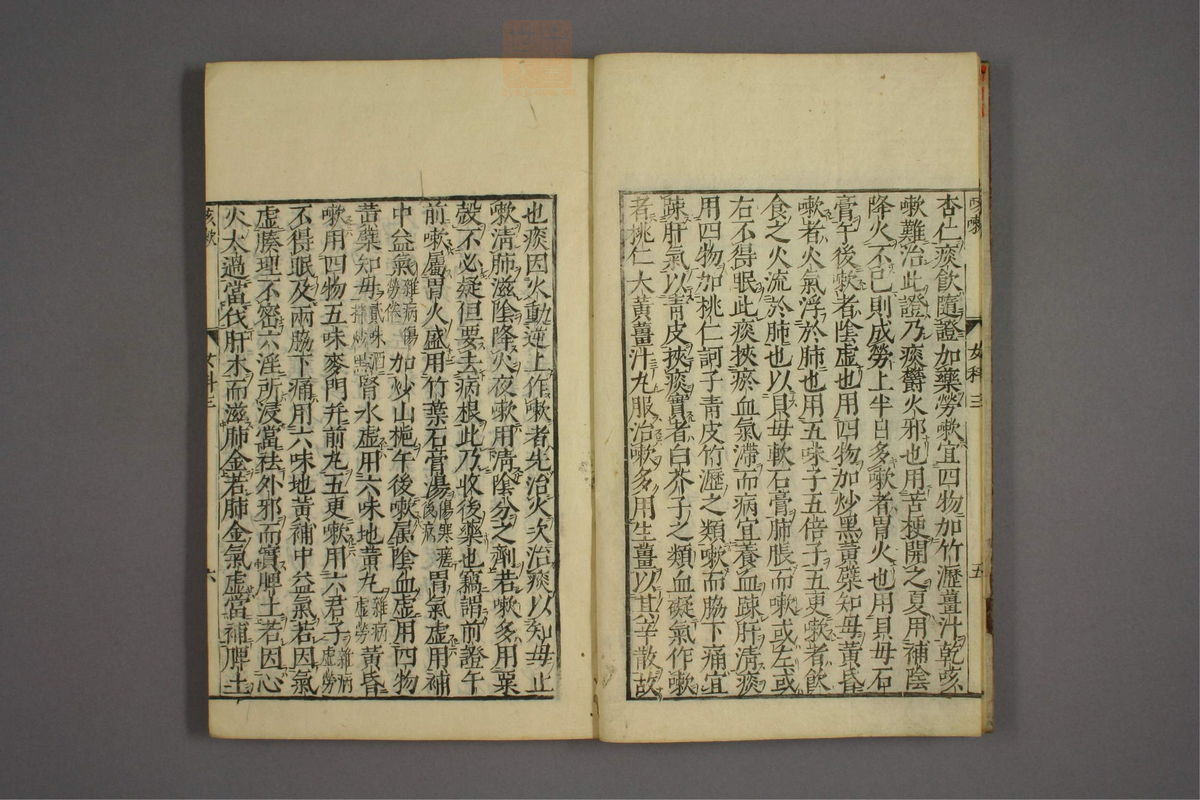 咳嗽
女科三
五
杏仁痰飲隨證加藥勞嗽宜四物加竹瀝薑汁乾咳
嗽難治此證乃痰欝火邪也用苦梗開之夏用補陰
降火不已則成勞上半日多嗽者胃火也用貝母石
膏午後嗽者陰虚也用四物加炒黑黄蘗知母黄昏
嗽者火氣浮於肺也用五味子五倍子五更嗽者飲
食之火流於肺也以貝母軟石膏肺脹而嗽或左或
右不得眠此痰挾瘀血氣滯而病宜養血踈肝清痰
用四物加桃仁訶子青皮竹瀝之類嗽而脇下痛宜
踈肝氣以青皮挾痰實者白芥子之類血礙氣作嗽
者桃仁大黄薑汁丸服治嗽多用生薑以其辛散故
也痰因火動逆上作嗽者先治火次治痰以知母止
嗽清肺滋陰降火夜嗽用清陰分之劑若嗽多用粟
殼不必疑但要去病根此乃收後藥也竊謂前證午
前嗽屬胃火盛用竹葉石膏湯傷寒瘥後病胃氣虚用補
中益氣雜病勞倦加炒山梔午後嗽屬陰血虚用四物
黄蘗知母腎水虚用六味地黄丸雜病虚勞黄昏
嗽用四物五味麥門并前丸五更嗽用六君子雜病虚勞
不得眠及兩脇下痛用六味地黄補中益氣若因氣
虚腠理不密六淫所浸當祛外邪而實脾土若因心
火太過當伐肝木而滋肺金若肺金氣虚當補脾土
咳嗽
女科三
六